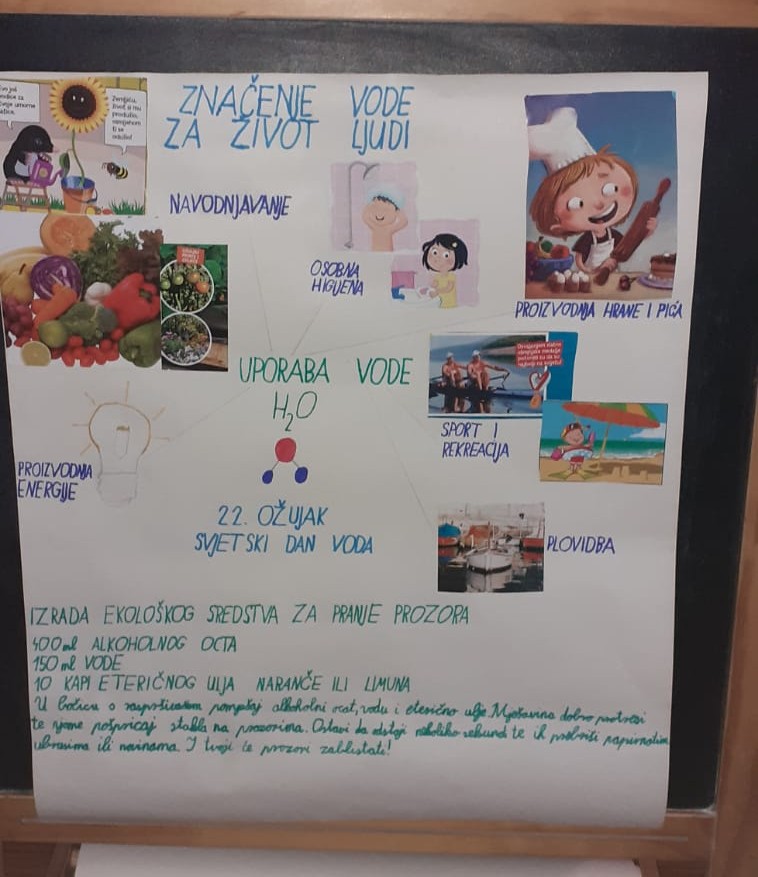 ZNAČENJE VODE
ZA ŽIVOT LJUDI
NAVODNJAVANJE
OSOBNA
HIGIJENA
PROIZVODNJA HRANE I PIĆA
UPORABA VODE
H₂O
SPORT I
REKREACIJA
PROIZVODNJA
ENERGIJE
22. OŽUJAK
SVJETSKI DAN VODA
PLOVIDBA
IZRADA EKOLOŠKOG SREDSTVA ZA PRANJE PROZORA
400 ml ALKOHOLNOG OCTA
150 ml VODE
10 KAPI ETERIČNOG ULJA NARANČE ILI LIMUNA
U bočicu s raspršivačem pomiješaj alkoholni ocat, vodu i eterično ulje. Mješavinu dobro protresi
te njome pošpricaj stakla na prozorima. Ostavi da odstoji nekoliko sekundi te ih prebriši papirnatim
ubrusima ili novinama. I tvoji će prozori zablistati!